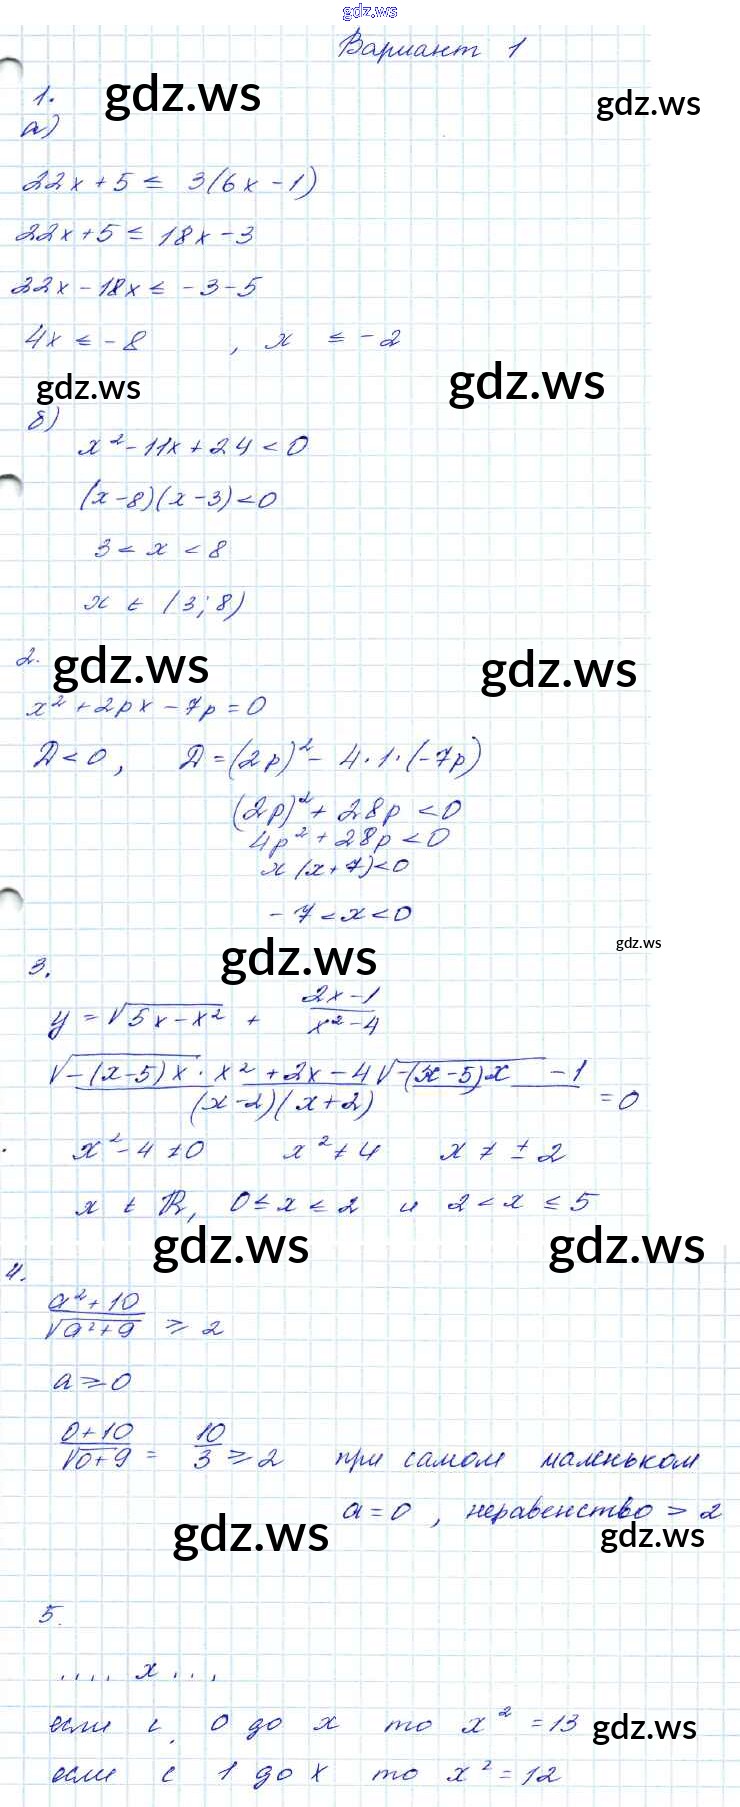 gdz.ws
Вариант 1
gdz.ws gdz.ws
1.
а)
22x + 5 ≤ 3(6x - 1)
22x + 5 ≤ 18x - 3
22x - 18x ≤ -3 - 5
4x ≤ -8 , x ≤ -2
gdz.ws gdz.ws
б)
x² - 11x + 24 < 0
(x - 8)(x - 3) < 0
3 < x < 8
x ∈ (3; 8)
2.
gdz.ws gdz.ws
x² + 2px - 7p = 0
D < 0, D = (2p)² - 4·1·(-7p)
(2p)² + 28p < 0
4p² + 28p < 0
x(x + 7) < 0
-7 < x < 0
gdz.ws gdz.ws
3.
y = √(5x - x²) + (2x - 1)/(x² - 4)
(√(-(x-5)x) · x² + 2x - 4√(-(x-5)x) - 1)/((x-2)(x+2)) = 0
x² - 4 ≠ 0 x² ≠ 4 x ≠ ± 2
x ∈ ℝ, 0 ≤ x ≤ 2 и 2 < x ≤ 5
gdz.ws gdz.ws
4.
(a² + 10)/√(a² + 9) ≥ 2
a ≥ 0
(0 + 10)/√(0 + 9) = 10/3 ≥ 2 при самом маленьком
a = 0 , неравенство > 2
gdz.ws gdz.ws
5.
.... x ...
если с 0 до x то x² = 13
gdz.ws
если с 1 до x то x² = 12